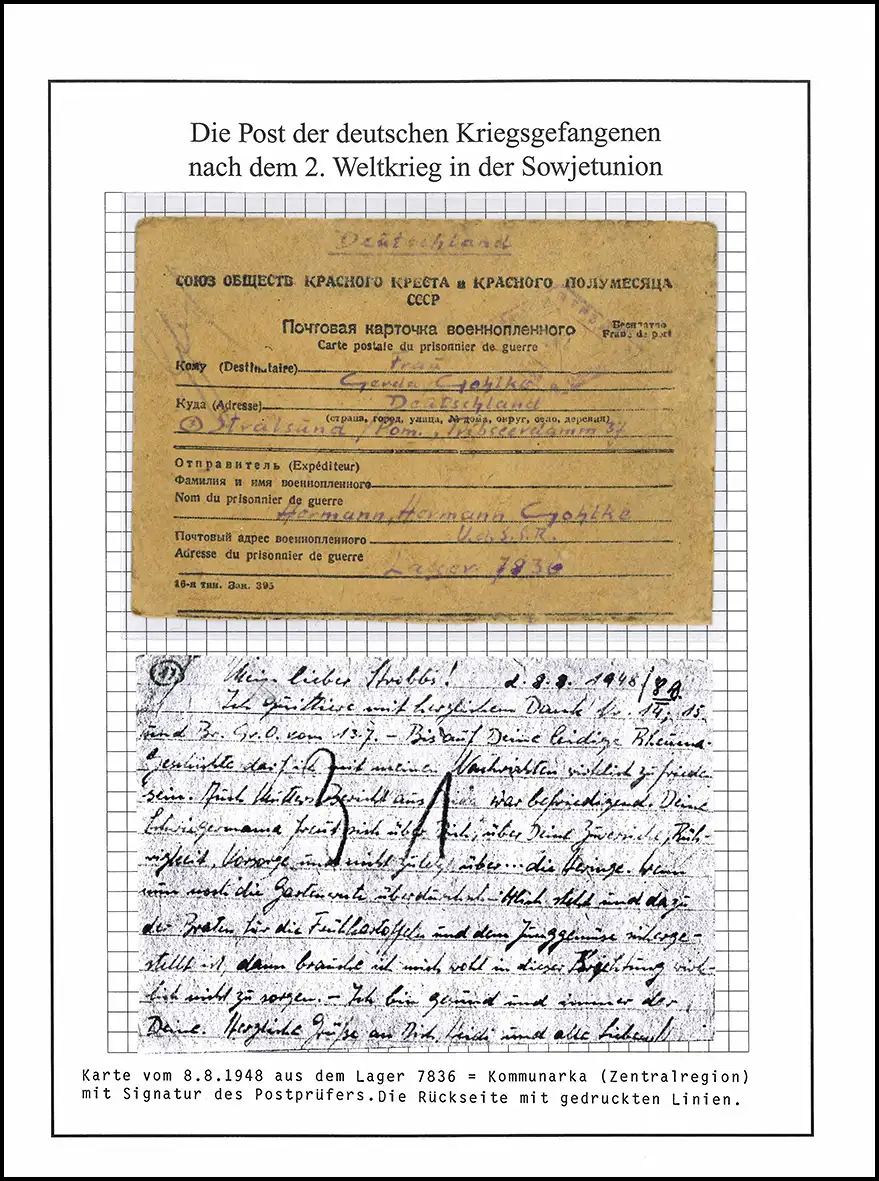 Die Post der deutschen Kriegsgefangenen
nach dem 2. Weltkrieg in der Sowjetunion
Deutschland
СОЮЗ ОБЩЕСТВ КРАСНОГО КРЕСТА и КРАСНОГО ПОЛУМЕСЯЦА
СССР
Почтовая карточка военнопленного
Бесплатно
Carte postale du prisonnier de guerre
Franc de port
Кому (Destinataire) Frau
Gerda Gohlke
Куда (Adresse) Deutschland
(страна, город, улица, № дома, округ, село, деревня)
Stralsund / Pom., Tribseerdamm 34
Отправитель (Expéditeur)
Фамилия и имя военнопленного
Nom du prisonnier de guerre
Hermann, Hermann Gohlke
Почтовый адрес военнопленного U.d.S.S.R.
Adresse du prisonnier de guerre
Lager 7836
16-я тип. Зак. 395
Mein lieber d. 8.8. 1948
Ich quittiere mit herzlichem Dank Nr. 14, 15
und Br. Gr. O. vom 13.7. – Bis auf Deine leidige Rheuma-
geschichte darf ich mit meinen Nachrichten wirklich zufrieden
sein. Auch Mutters Bericht aus war befriedigend. Deine
Schwiegermama freut sich über Dich, über Deine Zuversicht, Rüh-
rigkeit, Vorsorge und nicht zuletzt über... die Heringe. Wenn
nun noch die Gartenernte überdurchschnittlich steht und dazu
der Braten für die Frühkartoffeln und dem Junggemüse sicherge-
stellt ist, dann brauche ich mich wohl in dieser wirk-
lich nicht zu sorgen. – Ich bin gesund und immer der
Deine. Herzliche Grüße an Dich, Heidi und alle Lieben!
Karte vom 8.8.1948 aus dem Lager 7836 = Kommunarka (Zentralregion)
mit Signatur des Postprüfers.Die Rückseite mit gedruckten Linien.